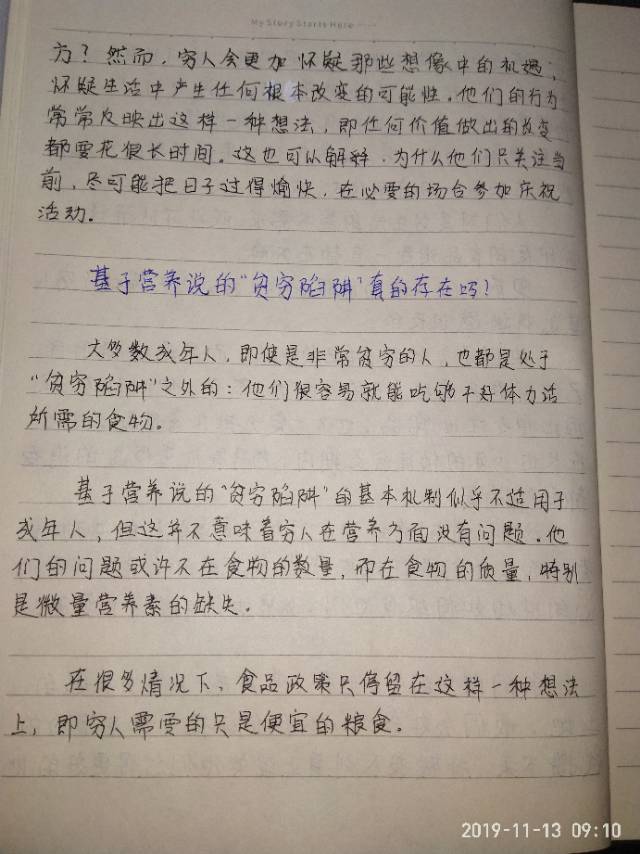 My Story Starts Here
方？然而，穷人会更加怀疑那些想像中的机遇；
怀疑生活中产生任何根本改变的可能性。他们的行为
常常反映出这样一种想法，即任何价值做出的改变
都要花很长时间。这也可以解释，为什么他们只关注当
前，尽可能把日子过得愉快，在必要的场合参加庆祝
活动。
基于营养说的“贫穷陷阱”真的存在吗？
大多数成年人，即使是非常贫穷的人，也都是处于
“贫穷陷阱”之外的：他们很容易就能吃够干好体力活
所需的食物。
基于营养说的“贫穷陷阱”的基本机制似乎不适用于
成年人，但这并不意味着穷人在营养方面没有问题。他
们的问题或许不在食物的数量，而在食物的质量，特别
是微量营养素的缺失。
在很多情况下，食品政策只停留在这样一种想法
上，即穷人需要的只是便宜的粮食。
2019-11-13 09:10